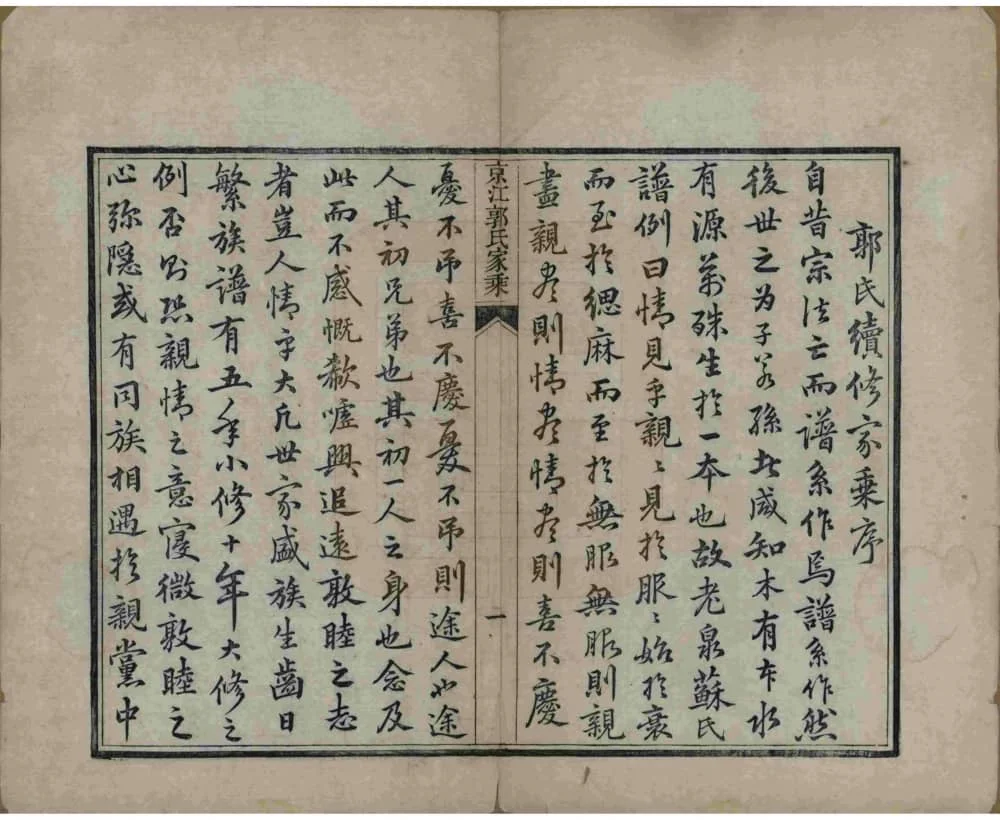 郭氏續修家乘序
自昔宗法亡而譜系作焉譜系作然
後世之为子若孫者咸知木有本水
有源萬殊生於一本也故老泉蘇氏
譜例曰情見乎親〻見於服〻始於衰
而至於緦麻而至於無服無服則親
盡親盡則情盡情盡則喜不慶
京江郭氏家乘
一
憂不吊喜不慶憂不吊則途人也途
人其初兄弟也其初一人之身也念及
此而不感慨欷噓興追遠敦睦之志
者豈人情乎大凡世家盛族生齒日
繁族譜有五年小修十年大修之
例否則恐親情之意寖微敦睦之
心弥隱或有同族相遇於親黨中